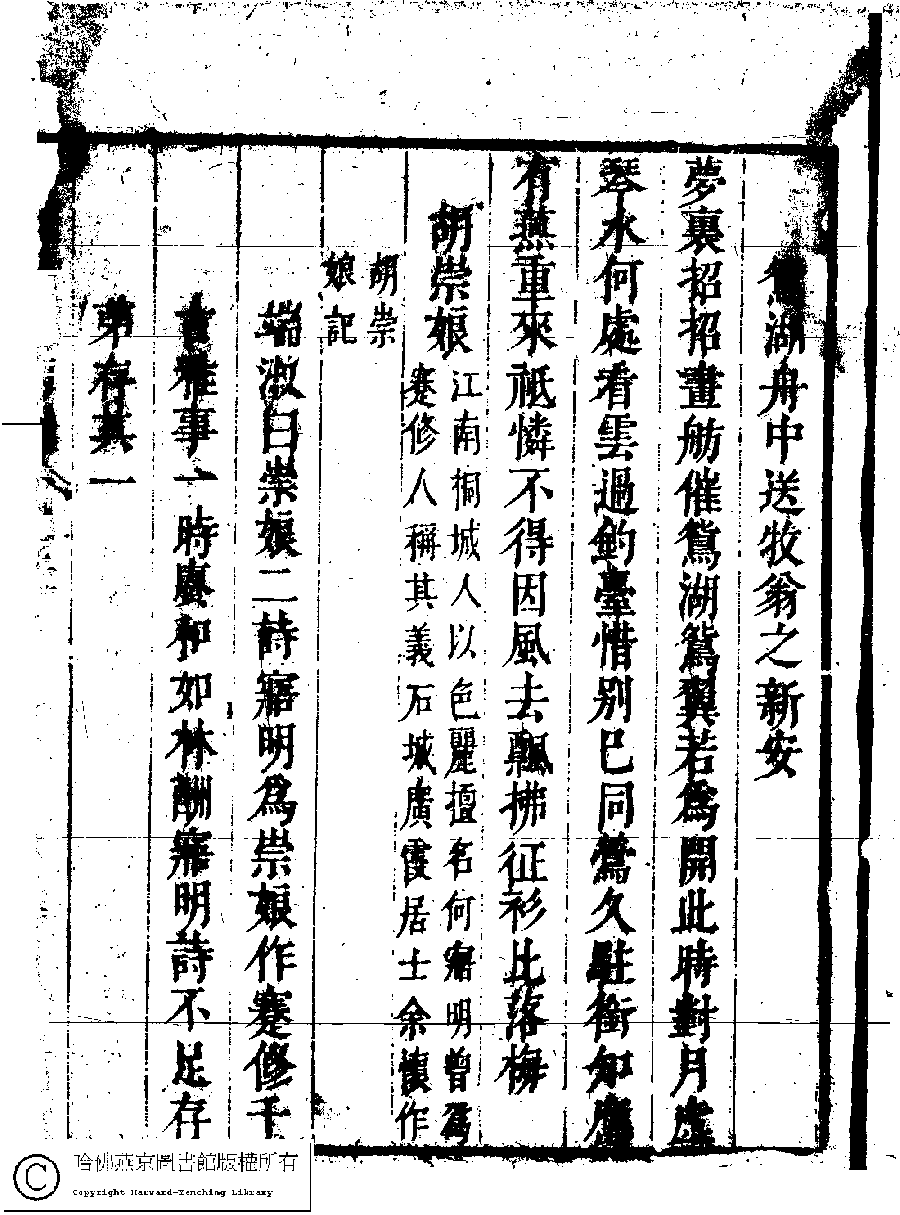 湖舟中送牧翁之新安
夢裏招招畫舫催鴛湖鴛翼若爲開此時對月虛
琴水何處看雲過釣臺惜別已同鶯久駐銜知應
有燕重來祗憐不得因風去飄拂征衫比落梅
胡崇娘
江南桐城人以色麗擅名何寤明曾爲
蹇修人稱其義石城廣霞居士余懷作
胡崇
娘記
端淑曰崇娘二詩寤明爲崇娘作蹇修千
古雅事一時賡和如林酬寤明詩不足存
第存其一
哈佛燕京圖書館版權所有
Copyright Harvard-Yenching Library